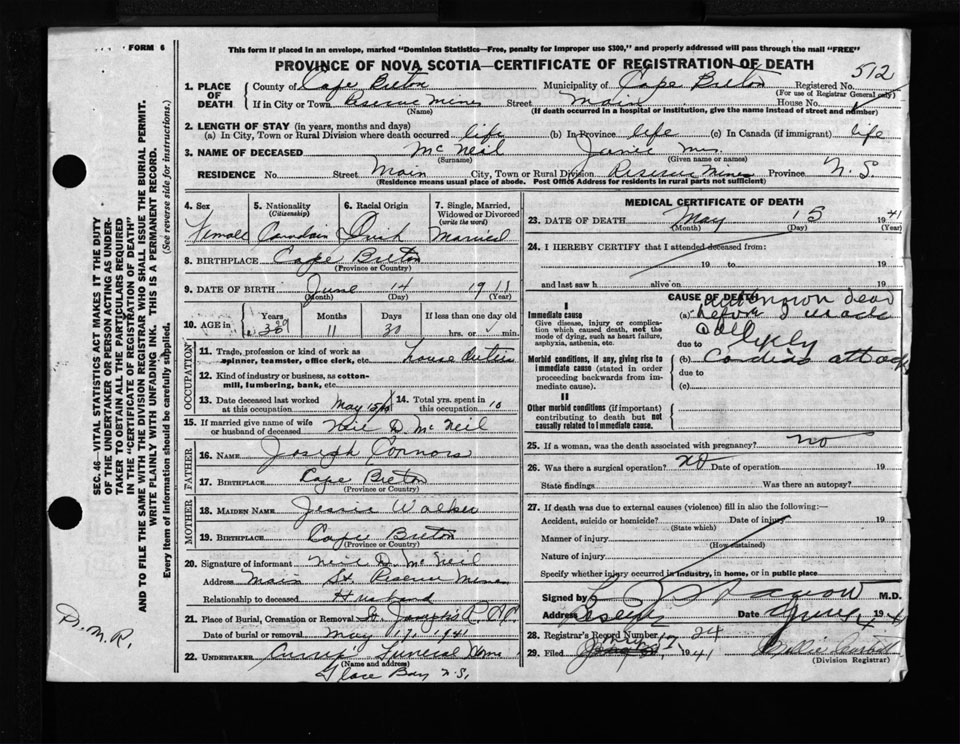 FORM 6
This form if placed in an envelope, marked "Dominion Statistics—Free, penalty for improper use $300," and properly addressed will pass through the mail "FREE"
PROVINCE OF NOVA SCOTIA—CERTIFICATE OF REGISTRATION OF DEATH
512
1. PLACE OF DEATH County of Cape Breton Municipality of Cape Breton Registered No.
(For use of Registrar General only)
If in City or Town Reserve Mines Street Main House No.
(Name) (If death occurred in a hospital or institution, give the name instead of street and number)
2. LENGTH OF STAY (in years, months and days)
(a) In City, Town or Rural Division where death occurred life (b) In Province life (c) In Canada (if immigrant) life
3. NAME OF DECEASED McNeil Mrs.
(Surname) (Given name or names)
RESIDENCE No. Street Main City, Town or Rural Division Reserve Mines Province N.S.
(Residence means usual place of abode. Post Office Address for residents in rural parts not sufficient)
4. Sex 5. Nationality 6. Racial Origin 7. Single, Married, Widowed or Divorced
(Citizenship) (write the word)
Female Married
8. BIRTHPLACE Cape Breton
(Province or Country)
9. DATE OF BIRTH June 14 1911
(Month) (Day) (Year)
10. AGE in Years Months Days If less than one day old
11 30 hrs. or min.
OCCUPATION
11. Trade, profession or kind of work as spinner, teamster, office clerk, etc.
12. Kind of industry or business, as cotton-mill, lumbering, bank, etc.
13. Date deceased last worked at this occupation May 14. Total yrs. spent in this occupation 10
15. If married give name of wife or husband of deceased Neil D. McNeil
FATHER
16. NAME Joseph Connors
17. BIRTHPLACE Cape Breton
(Province or Country)
MOTHER
18. MAIDEN NAME Jessie Walker
19. BIRTHPLACE Cape Breton
(Province or Country)
20. Signature of informant Neil D. McNeil
Address Main St. Reserve Mines
Relationship to deceased Husband
21. Place of Burial, Cremation or Removal St. Joseph's R.C.
Date of burial or removal May 17, 1941
22. UNDERTAKER Funeral Home
(Name and address)
Glace Bay N.S.
MEDICAL CERTIFICATE OF DEATH
23. DATE OF DEATH May 15 1941
(Month) (Day) (Year)
24. I HEREBY CERTIFY that I attended deceased from:
19 to 19
and last saw h alive on 19
CAUSE OF DEATH
I
Immediate cause
Give disease, injury or complication which caused death, not the mode of dying, such as heart failure, asphyxia, asthenia, etc.
(a) dead before I made call
due to
Morbid conditions, if any, giving rise to immediate cause (stated in order proceeding backwards from immediate cause).
(b) attack
due to
(c)
II
Other morbid conditions (if important) contributing to death but not causally related to immediate cause.
25. If a woman, was the death associated with pregnancy? no
26. Was there a surgical operation? no Date of operation 19
State findings Was there an autopsy?
27. If death was due to external causes (violence) fill in also the following:—
Accident, suicide or homicide? Date of injury 19
(State which)
Manner of injury
(How sustained)
Nature of injury
Specify whether injury occurred in industry, in home, or in public place
Signed by M.D.
Address Date June 1941
28. Registrar's Record Number 24
29. Filed 1941
(Division Registrar)
SEC. 46—VITAL STATISTICS ACT MAKES IT THE DUTY
OF THE UNDERTAKER OR PERSON ACTING AS UNDERTAKER TO OBTAIN ALL THE PARTICULARS REQUIRED
IN THE "CERTIFICATE OF REGISTRATION OF DEATH"
AND TO FILE THE SAME WITH THE DIVISION REGISTRAR WHO SHALL ISSUE THE BURIAL PERMIT.
WRITE PLAINLY WITH UNFADING INK. THIS IS A PERMANENT RECORD.
Every item of Information should be carefully supplied. (See reverse side for instructions.)
D.M.R.